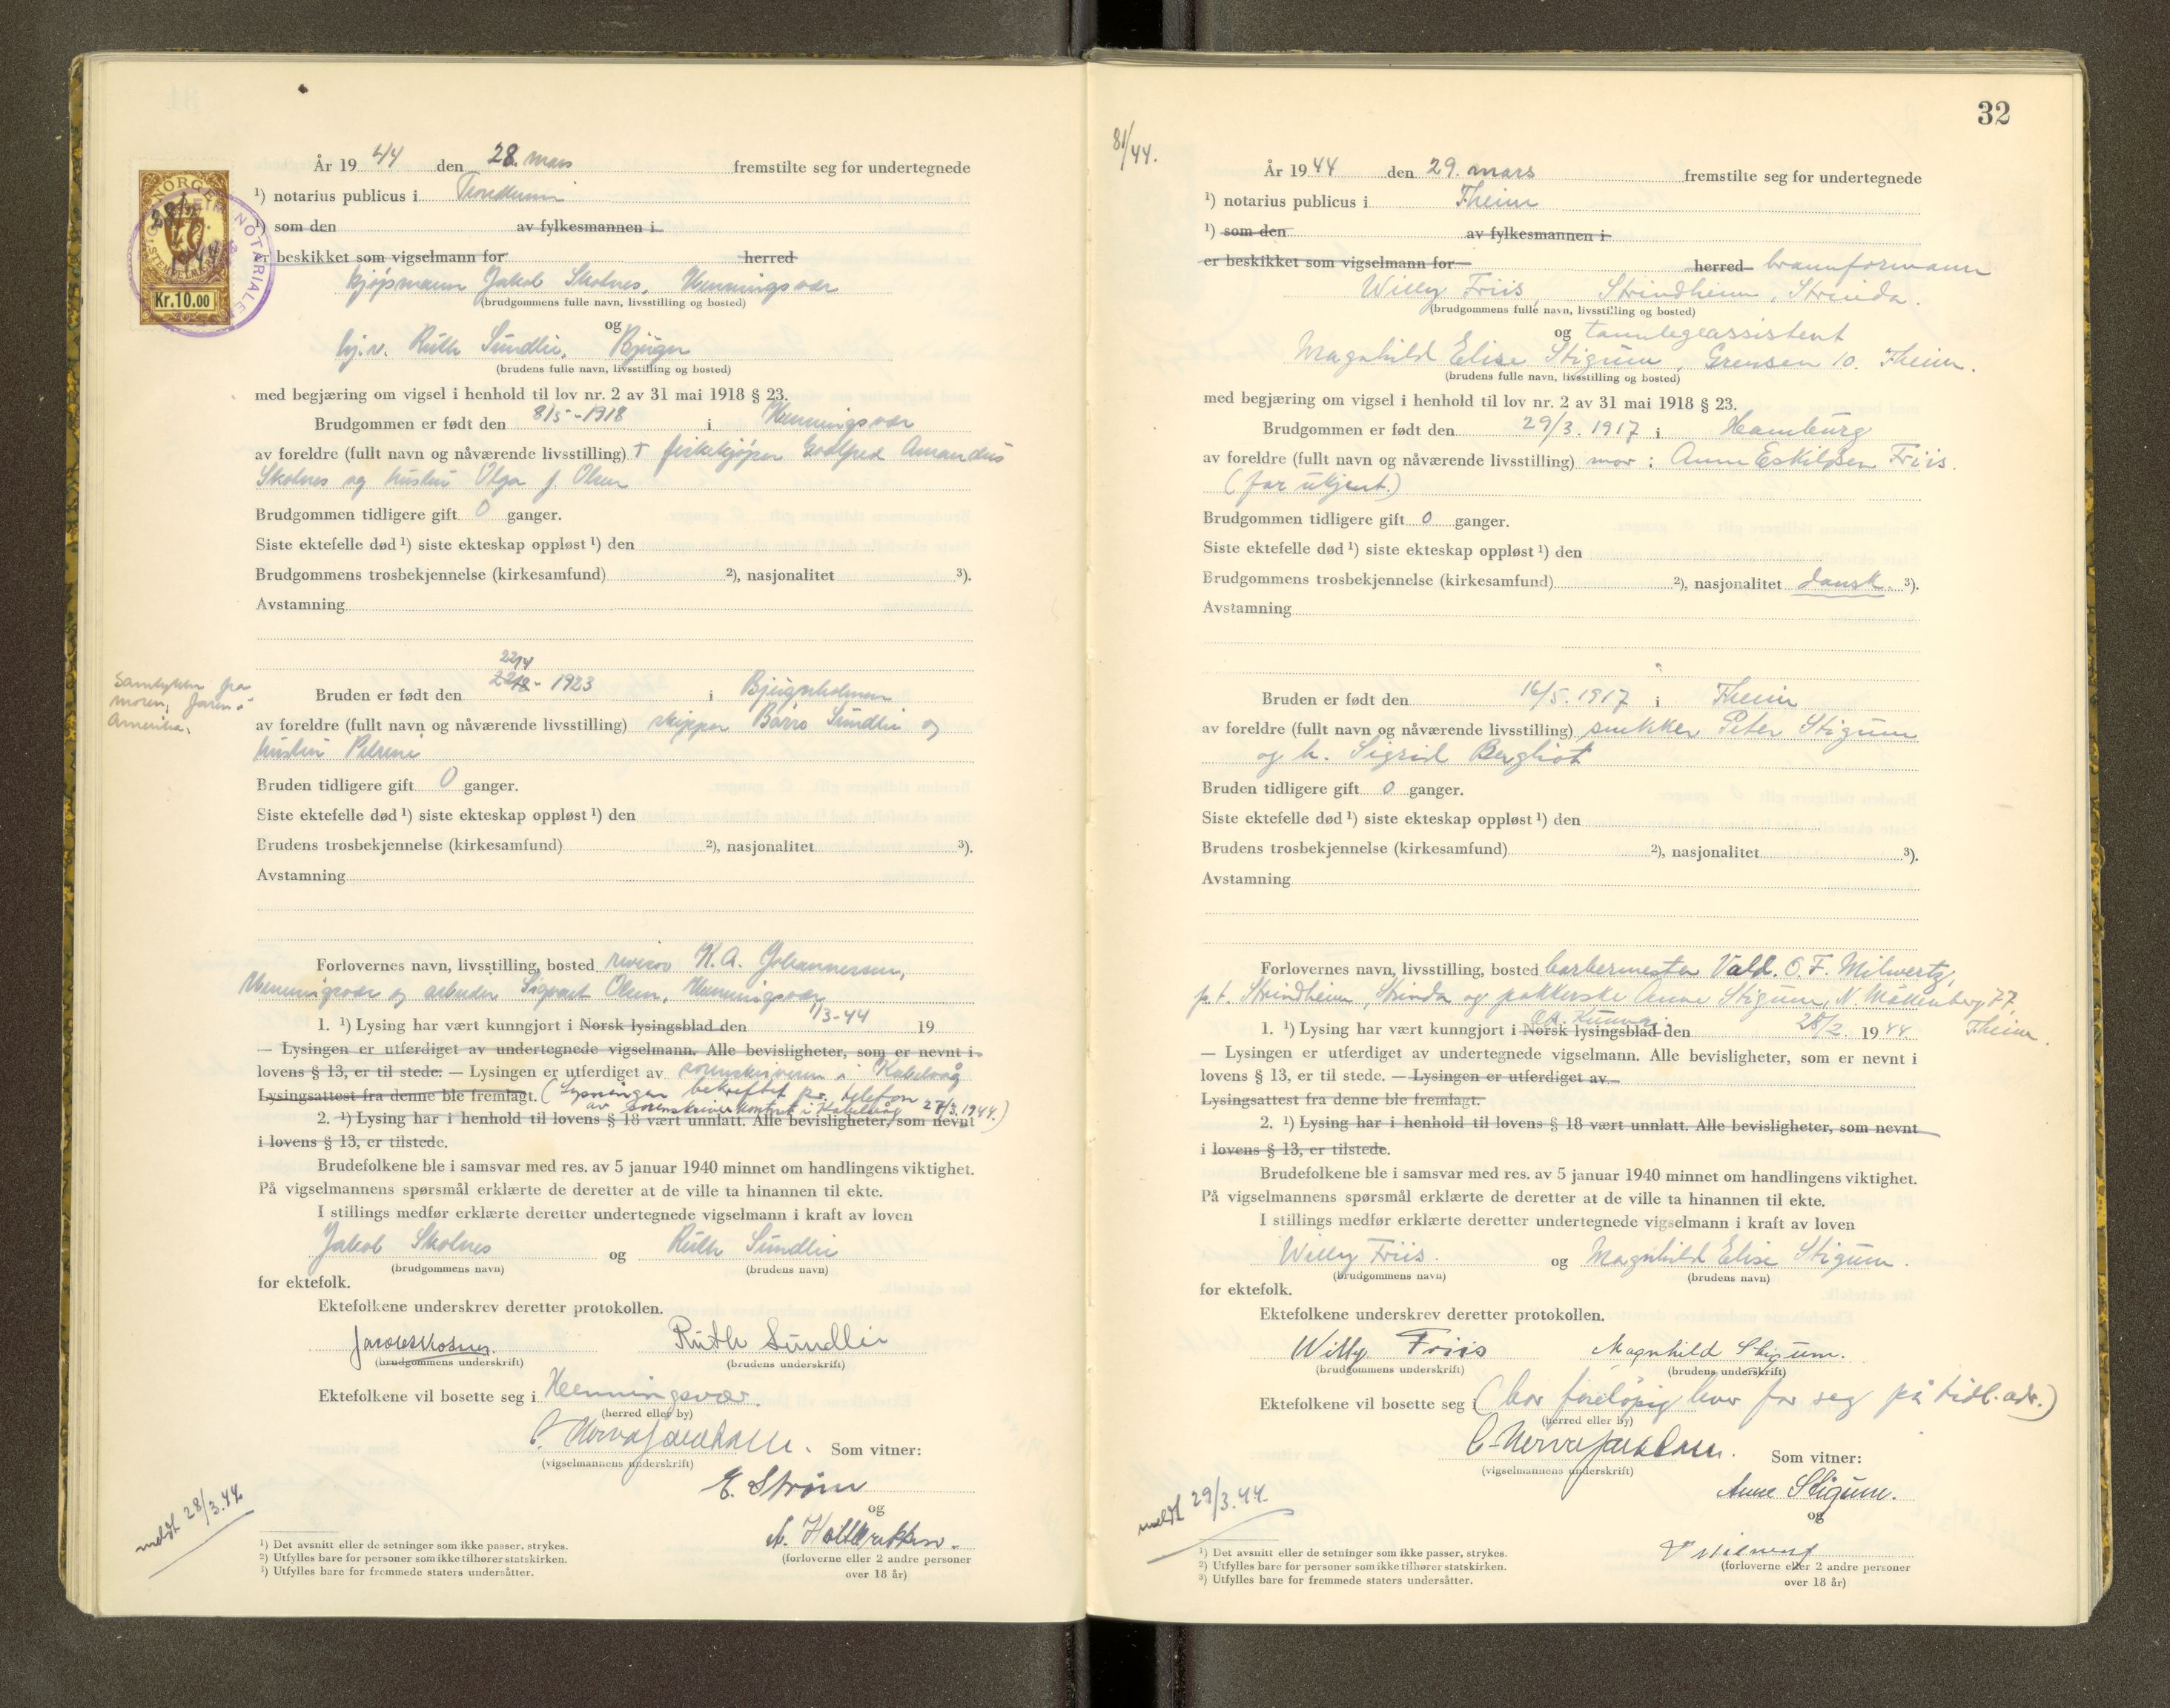 År 1944 den 28. mars fremstilte seg for undertegnede
¹) notarius publicus i Trondheim
¹) som den av fylkesmannen i
er beskikket som vigselmann for herred
kjøpmann Jakob Skolnes, Henningsvær
(brudgommens fulle navn, livsstilling og bosted)
og
hj.v. Ruth Sundlie, Bjugn
(brudens fulle navn, livsstilling og bosted)
med begjæring om vigsel i henhold til lov nr. 2 av 31 mai 1918 § 23.
Brudgommen er født den 8/5-1918 i Henningsvær
av foreldre (fullt navn og nåværende livsstilling) † fiskekjøper Godtfred Amandus
Skolnes og hustru Olga J. Olsen
Brudgommen tidligere gift 0 ganger.
Siste ektefelle død ¹) siste ekteskap oppløst ¹) den
Brudgommens trosbekjennelse (kirkesamfund) ²), nasjonalitet ³).
Avstamning
NORGE
Kr.10.00
NOTARIALE
22/4
Samtykke fra
moren, faren i
Amerika.
Bruden er født den 1923 i Bjugnholmen
av foreldre (fullt navn og nåværende livsstilling) skipper Barro Sundlie og
hustru Petrine
Bruden tidligere gift 0 ganger.
Siste ektefelle død ¹) siste ekteskap oppløst ¹) den
Brudens trosbekjennelse (kirkesamfund) ²), nasjonalitet ³).
Avstamning
Forlovernes navn, livsstilling, bosted revisor K.A. Johannessen,
Henningsvær og arbeider Sigvart Olsen, Henningsvær
1. ¹) Lysing har vært kunngjort i Norsk lysingsblad den 1/3-44 19
— Lysingen er utferdiget av undertegnede vigselmann. Alle bevisligheter, som er nevnt i
lovens § 13, er til stede. — Lysingen er utferdiget av sorenskriveren i Kabelvåg
Lysingsattest fra denne ble fremlagt. (Lysningen bekreftet pr. telefon
av sorenskriverkontort i Kabelvåg 27/3.1944.)
2. ¹) Lysing har i henhold til lovens § 18 vært unnlatt. Alle bevisligheter, som nevnt
i lovens § 13, er tilstede.
Brudefolkene ble i samsvar med res. av 5 januar 1940 minnet om handlingens viktighet.
På vigselmannens spørsmål erklærte de deretter at de ville ta hinannen til ekte.
I stillings medfør erklærte deretter undertegnede vigselmann i kraft av loven
Jakob Skolnes og Ruth Sundlie
(brudgommens navn) (brudens navn)
for ektefolk.
Ektefolkene underskrev deretter protokollen.
Ruth Sundlie
(brudgommens underskrift) (brudens underskrift)
Ektefolkene vil bosette seg i Henningsvær.
(herred eller by)
Som vitner:
(vigselmannens underskrift)
E. Strøm
og
(forloverne eller 2 andre personer
over 18 år)
meldt 28/3.44
¹) Det avsnitt eller de setninger som ikke passer, strykes.
²) Utfylles bare for personer som ikke tilhører statskirken.
³) Utfylles bare for fremmede staters undersåtter.
32
81/44.
År 1944 den 29. mars fremstilte seg for undertegnede
¹) notarius publicus i Theim
¹) som den av fylkesmannen i
er beskikket som vigselmann for herred brannformann
Willy Friis, Strindheim, Strinda.
(brudgommens fulle navn, livsstilling og bosted)
og tannlegeassistent
Magnhild Elise Stigum, Grensen 10. Theim.
(brudens fulle navn, livsstilling og bosted)
med begjæring om vigsel i henhold til lov nr. 2 av 31 mai 1918 § 23.
Brudgommen er født den 29/3. 1917 i Hamburg
av foreldre (fullt navn og nåværende livsstilling) mor: Anne Eskildsen Friis.
(far ukjent.)
Brudgommen tidligere gift 0 ganger.
Siste ektefelle død ¹) siste ekteskap oppløst ¹) den
Brudgommens trosbekjennelse (kirkesamfund) ²), nasjonalitet dansk. ³).
Avstamning
Bruden er født den 16/5. 1917 i Theim
av foreldre (fullt navn og nåværende livsstilling) snekker Peter Stigum
og h. Sigrid Bergliot
Bruden tidligere gift 0 ganger.
Siste ektefelle død ¹) siste ekteskap oppløst ¹) den
Brudens trosbekjennelse (kirkesamfund) ²), nasjonalitet ³).
Avstamning
Forlovernes navn, livsstilling, bosted barbermester Vald. O.F. Milwertz,
p.t. Strindheim, Strinda og pakkerske Anne Stigum, N. Møllenberg 77,
Theim.
1. ¹) Lysing har vært kunngjort i Norsk lysingsblad den 28/2. 1944
— Lysingen er utferdiget av undertegnede vigselmann. Alle bevisligheter, som er nevnt i
lovens § 13, er til stede. — Lysingen er utferdiget av
Lysingsattest fra denne ble fremlagt.
2. ¹) Lysing har i henhold til lovens § 18 vært unnlatt. Alle bevisligheter, som nevnt
i lovens § 13, er tilstede.
Brudefolkene ble i samsvar med res. av 5 januar 1940 minnet om handlingens viktighet.
På vigselmannens spørsmål erklærte de deretter at de ville ta hinannen til ekte.
I stillings medfør erklærte deretter undertegnede vigselmann i kraft av loven
Willy Friis. og Magnhild Elise Stigum.
(brudgommens navn) (brudens navn)
for ektefolk.
Ektefolkene underskrev deretter protokollen.
Willy Friis Magnhild Stigum.
(brudgommens underskrift) (brudens underskrift)
Ektefolkene vil bosette seg i (bor foreløpig hver for seg på tidl. adr.)
(herred eller by)
Som vitner:
(vigselmannens underskrift)
Anne Stigum.
og
(forloverne eller 2 andre personer
over 18 år)
meldt 29/3.44.
¹) Det avsnitt eller de setninger som ikke passer, strykes.
²) Utfylles bare for personer som ikke tilhører statskirken.
³) Utfylles bare for fremmede staters undersåtter.